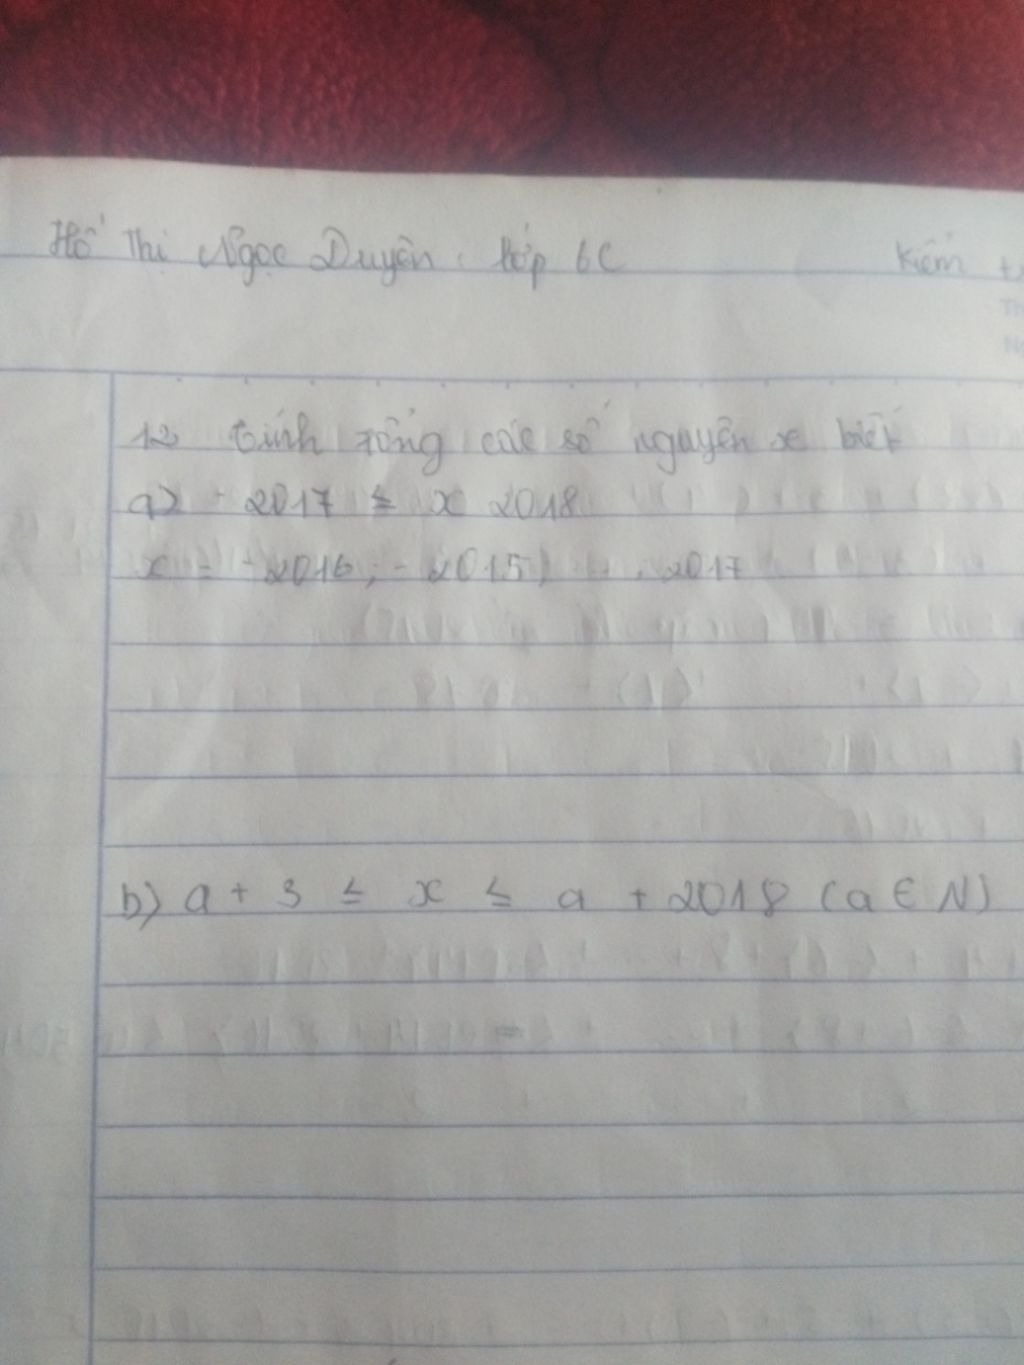 Hồ Thị Ngọc Duyên : Lớp 6C
Kiểm
12 tính tổng các số nguyên x biết
a) - 2017 ≤ x 2018
x = -2016; - 2015; ... 2017
b) a + 3 ≤ x ≤ a + 2018 (a ∈ N)